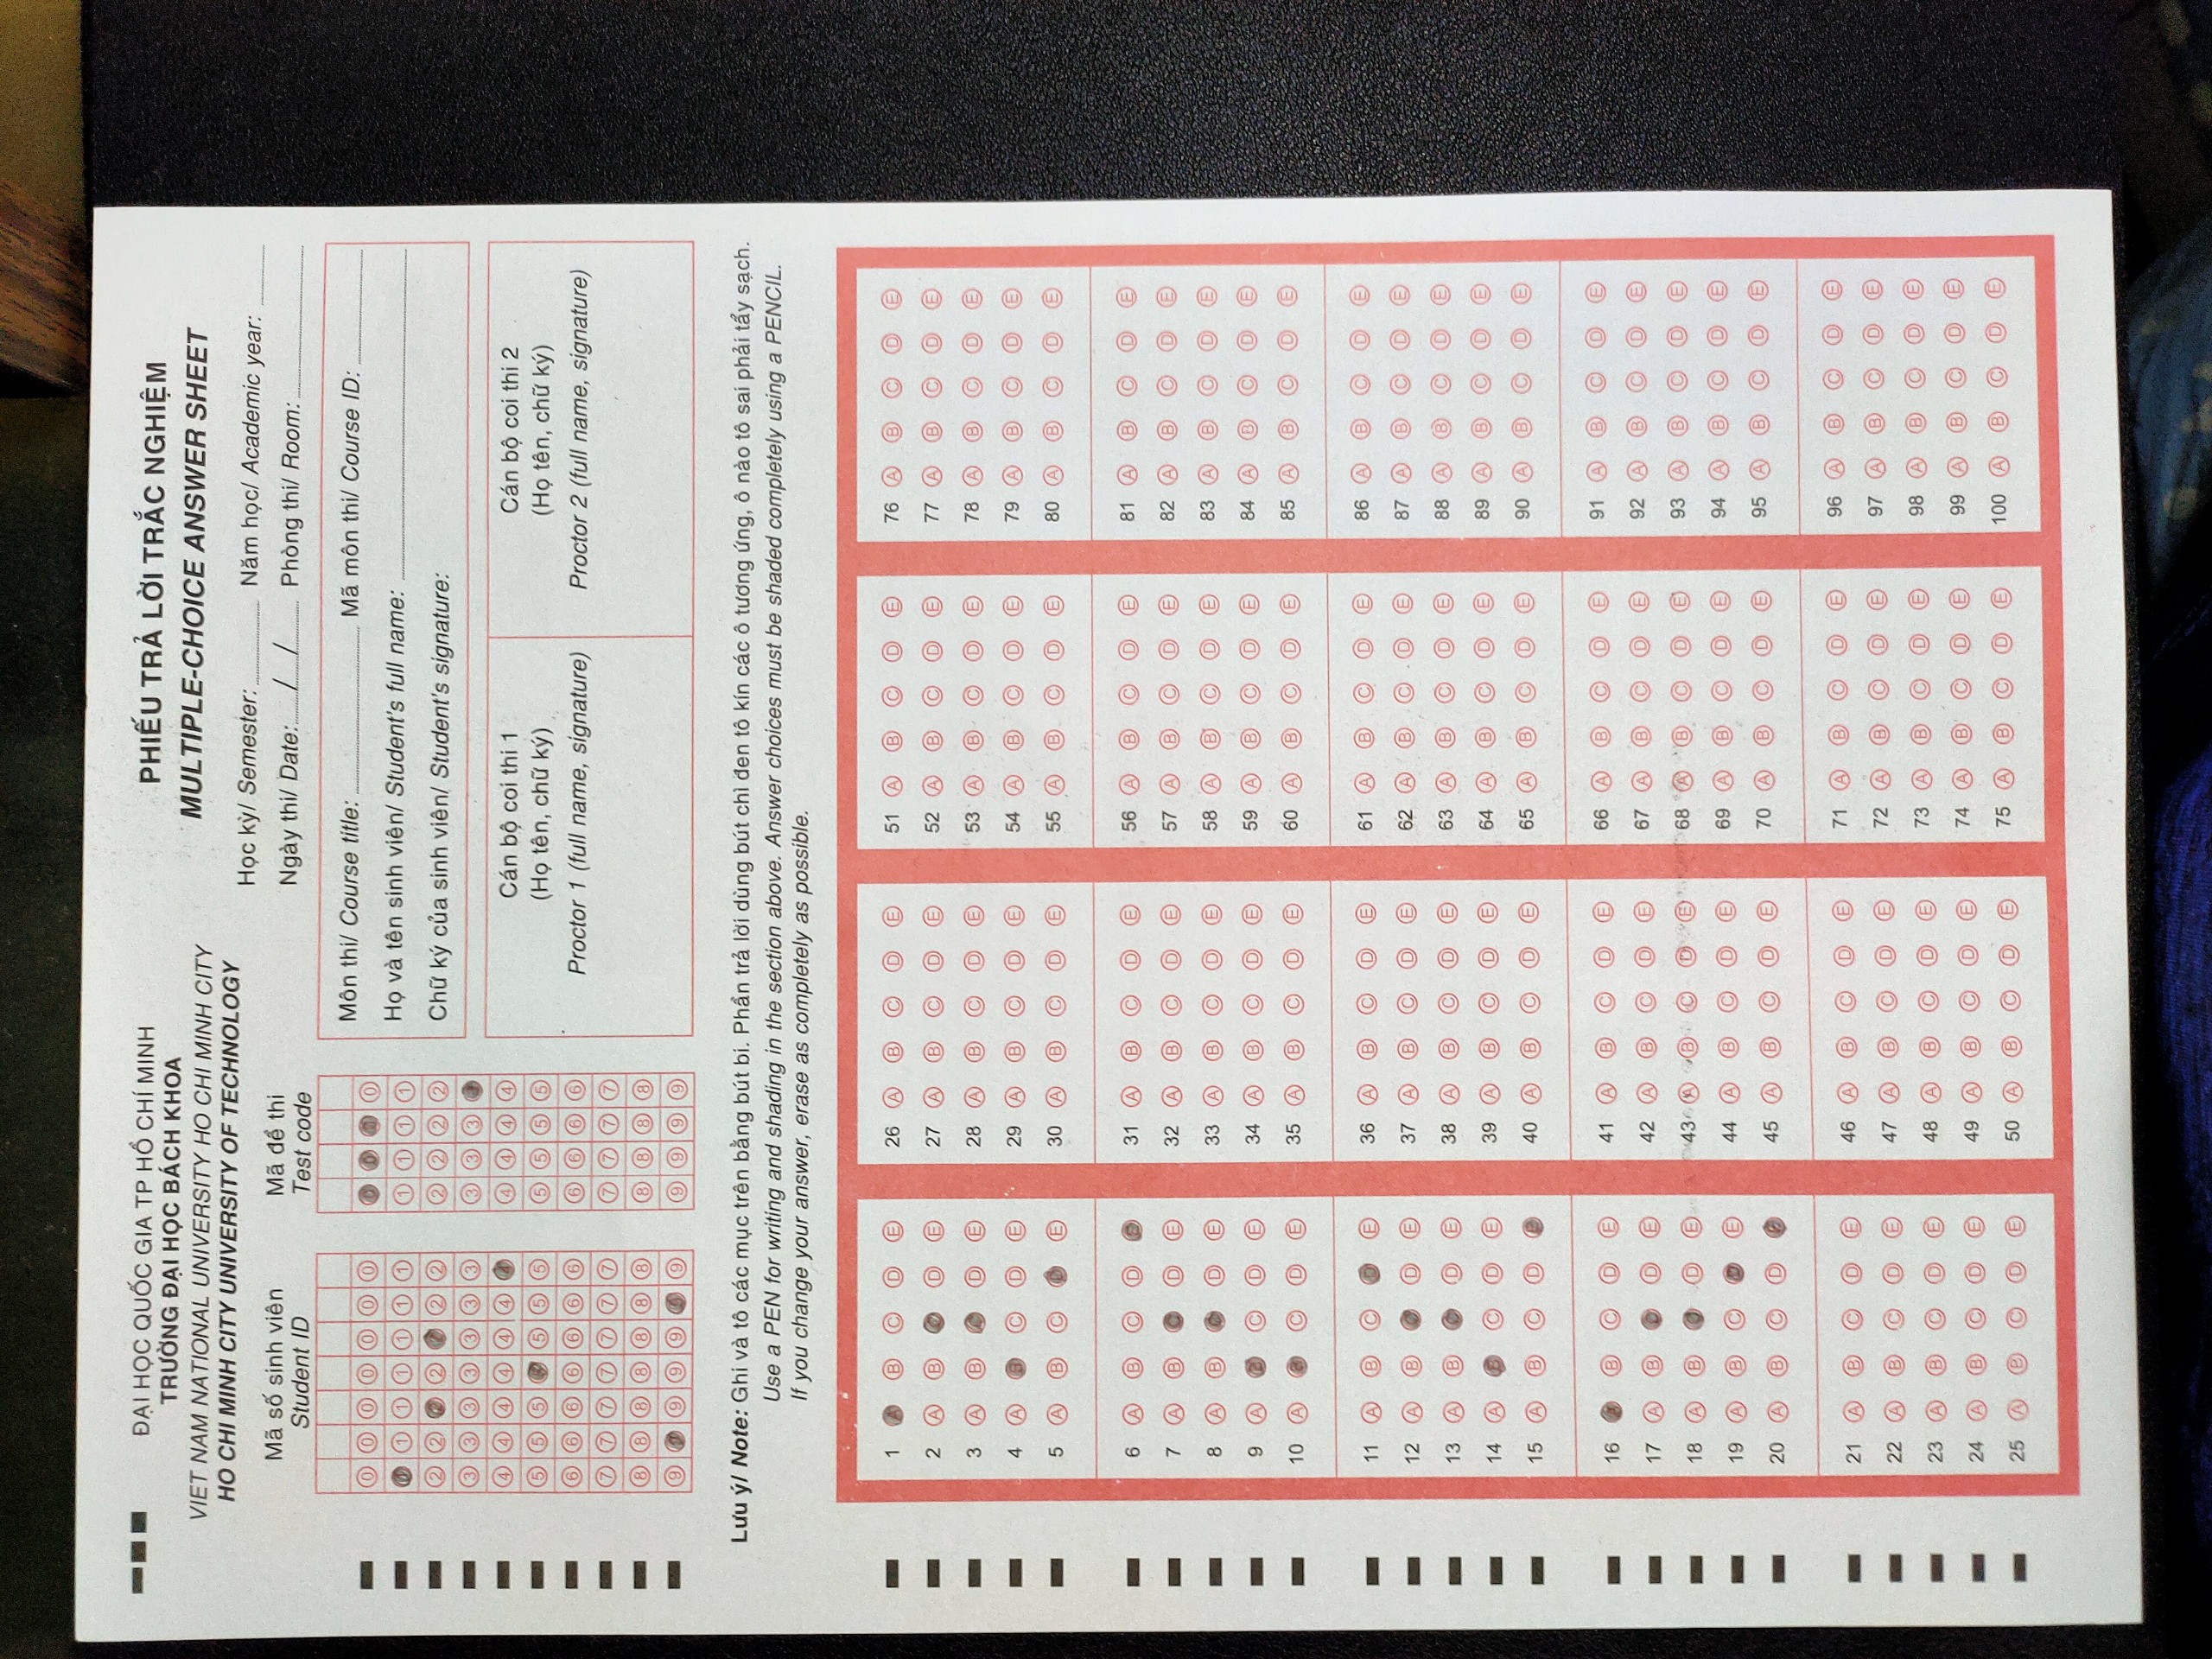 ĐẠI HỌC QUỐC GIA TP HỒ CHÍ MINH
TRƯỜNG ĐẠI HỌC BÁCH KHOA
VIET NAM NATIONAL UNIVERSITY HO CHI MINH CITY
HO CHI MINH CITY UNIVERSITY OF TECHNOLOGY
PHIẾU TRẢ LỜI TRẮC NGHIỆM
MULTIPLE-CHOICE ANSWER SHEET
Học kỳ/ Semester: Năm học/ Academic year:
Ngày thi/ Date: / / Phòng thi/ Room:
Mã số sinh viên
Student ID
Mã đề thi
Test code
0 0 0 0 0 0 0 0 0 0 0
1 1 1 1 1 1 1 1 1 1
2 2 2 2 2 2 2 2 2
3 3 3 3 3 3 3 3 3 3
4 4 4 4 4 4 4 4 4 4
5 5 5 5 5 5 5 5 5 5
6 6 6 6 6 6 6 6 6 6 6
7 7 7 7 7 7 7 7 7 7 7
8 8 8 8 8 8 8 8 8 8 8
9 9 9 9 9 9 9 9 9
Môn thi/ Course title: Mã môn thi/ Course ID:
Họ và tên sinh viên/ Student's full name:
Chữ ký của sinh viên/ Student's signature:
Cán bộ coi thi 1
(Họ tên, chữ ký)
Proctor 1 (full name, signature)
Cán bộ coi thi 2
(Họ tên, chữ ký)
Proctor 2 (full name, signature)
Lưu ý/ Note: Ghi và tô các mục trên bằng bút bi. Phần trả lời dùng bút chì đen tô kín các ô tương ứng, ô nào tô sai phải tẩy sạch.
Use a PEN for writing and shading in the section above. Answer choices must be shaded completely using a PENCIL.
If you change your answer, erase as completely as possible.
1 A B C D E
2 A B D E
3 A B C D E
4 A B C D E
5 A B C D E
6 A B C D
7 A B C D E
8 A B C D E
9 A C D E
10 A B C D E
11 A B C E
12 A B D E
13 A B C D E
14 A B C D E
15 A B C D
16 B C D E
17 A B D E
18 A B D E
19 A B C D E
20 A B C D
21 A B C D E
22 A B C D E
23 A B C D E
24 A B C D E
25 A B C D E
26 A B C D E
27 A B C D E
28 A B C D E
29 A B C D E
30 A B C D E
31 A B C D E
32 A B C D E
33 A B C D E
34 A B C D E
35 A B C D E
36 A B C D E
37 A B C D E
38 A B C D E
39 A B C D E
40 A B C D E
41 A B C D E
42 A B C D E
43 A B C D E
44 A B C D E
45 A B C D E
46 A B C D E
47 A B C D E
48 A B C D E
49 A B C D E
50 A B C D E
51 A B C D E
52 A B C D E
53 A B C D E
54 A B C D E
55 A B C D E
56 A B C D E
57 A B C D E
58 A B C D E
59 A B C D E
60 A B C D E
61 A B C D E
62 A B C D E
63 A B C D E
64 A B C D E
65 A B C D E
66 A B C D E
67 A B C D E
68 A B C D E
69 A B C D E
70 A B C D E
71 A B C D E
72 A B C D E
73 A B C D E
74 A B C D E
75 A B C D E
76 A B C D E
77 A B C D E
78 A B C D E
79 A B C D E
80 A B C D E
81 A B C D E
82 A B C D E
83 A B C D E
84 A B C D E
85 A B C D E
86 A B C D E
87 A B C D E
88 A B C D E
89 A B C D E
90 A B C D E
91 A B C D E
92 A B C D E
93 A B C D E
94 A B C D E
95 A B C D E
96 A B C D E
97 A B C D E
98 A B C D E
99 A B C D E
100 A B C D E